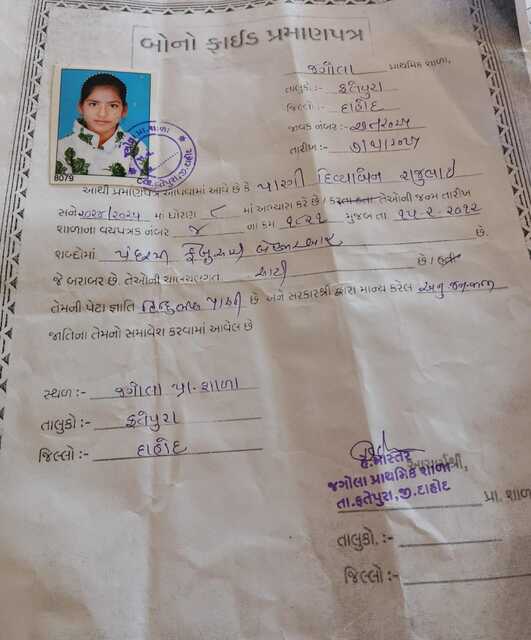 બોનો ફાઈડ પ્રમાણપત્ર
જગોલા પ્રાથમિક શાળા,
તાલુકો :- ફતેપુરા
જિલ્લો :- દાહોદ
જાવક નંબર :-
તારીખ :-
8079
આથી પ્રમાણપત્ર આપવામાં આવે છે કે પારગી દિવ્યાબેન
સને ૨૦૨૪/૨૦૨૫ માં ધોરણ ૮ માં અભ્યાસ કરે છે / કરતા હતા તેઓની જન્મ તારીખ
શાળાના વયપત્રક નંબર ૪ ના ક્રમ ૧૮૨૧ મુજબ તા ૧૫-૨-૨૦૧૨ છે.
શબ્દોમાં પંદરમી ફેબ્રુઆરી બે હજાર બાર
જે બરાબર છે. તેઓની ચાલચલગત સારી છે / હતી
તેમની પેટા જ્ઞાતિ હિન્દુ પારગી છે અને સરકારશ્રી દ્વારા માન્ય કરેલ અનુ જનજાતિ
જાતિના તેમનો સમાવેશ કરવામાં આવેલ છે
સ્થળ :- જગોલા પ્રા. શાળા
તાલુકો :- ફતેપુરા
જિલ્લો :- દાહોદ
હે.માસ્તર આચાર્યશ્રી,
જગોલા પ્રાથમિક શાળા
તા.ફતેપુરા,જી.દાહોદ પ્રા. શાળા
તાલુકો. :-
જિલ્લો :-